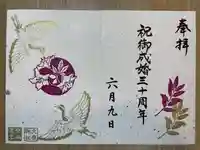 奉拝
祝御成婚三十周年
六月九日